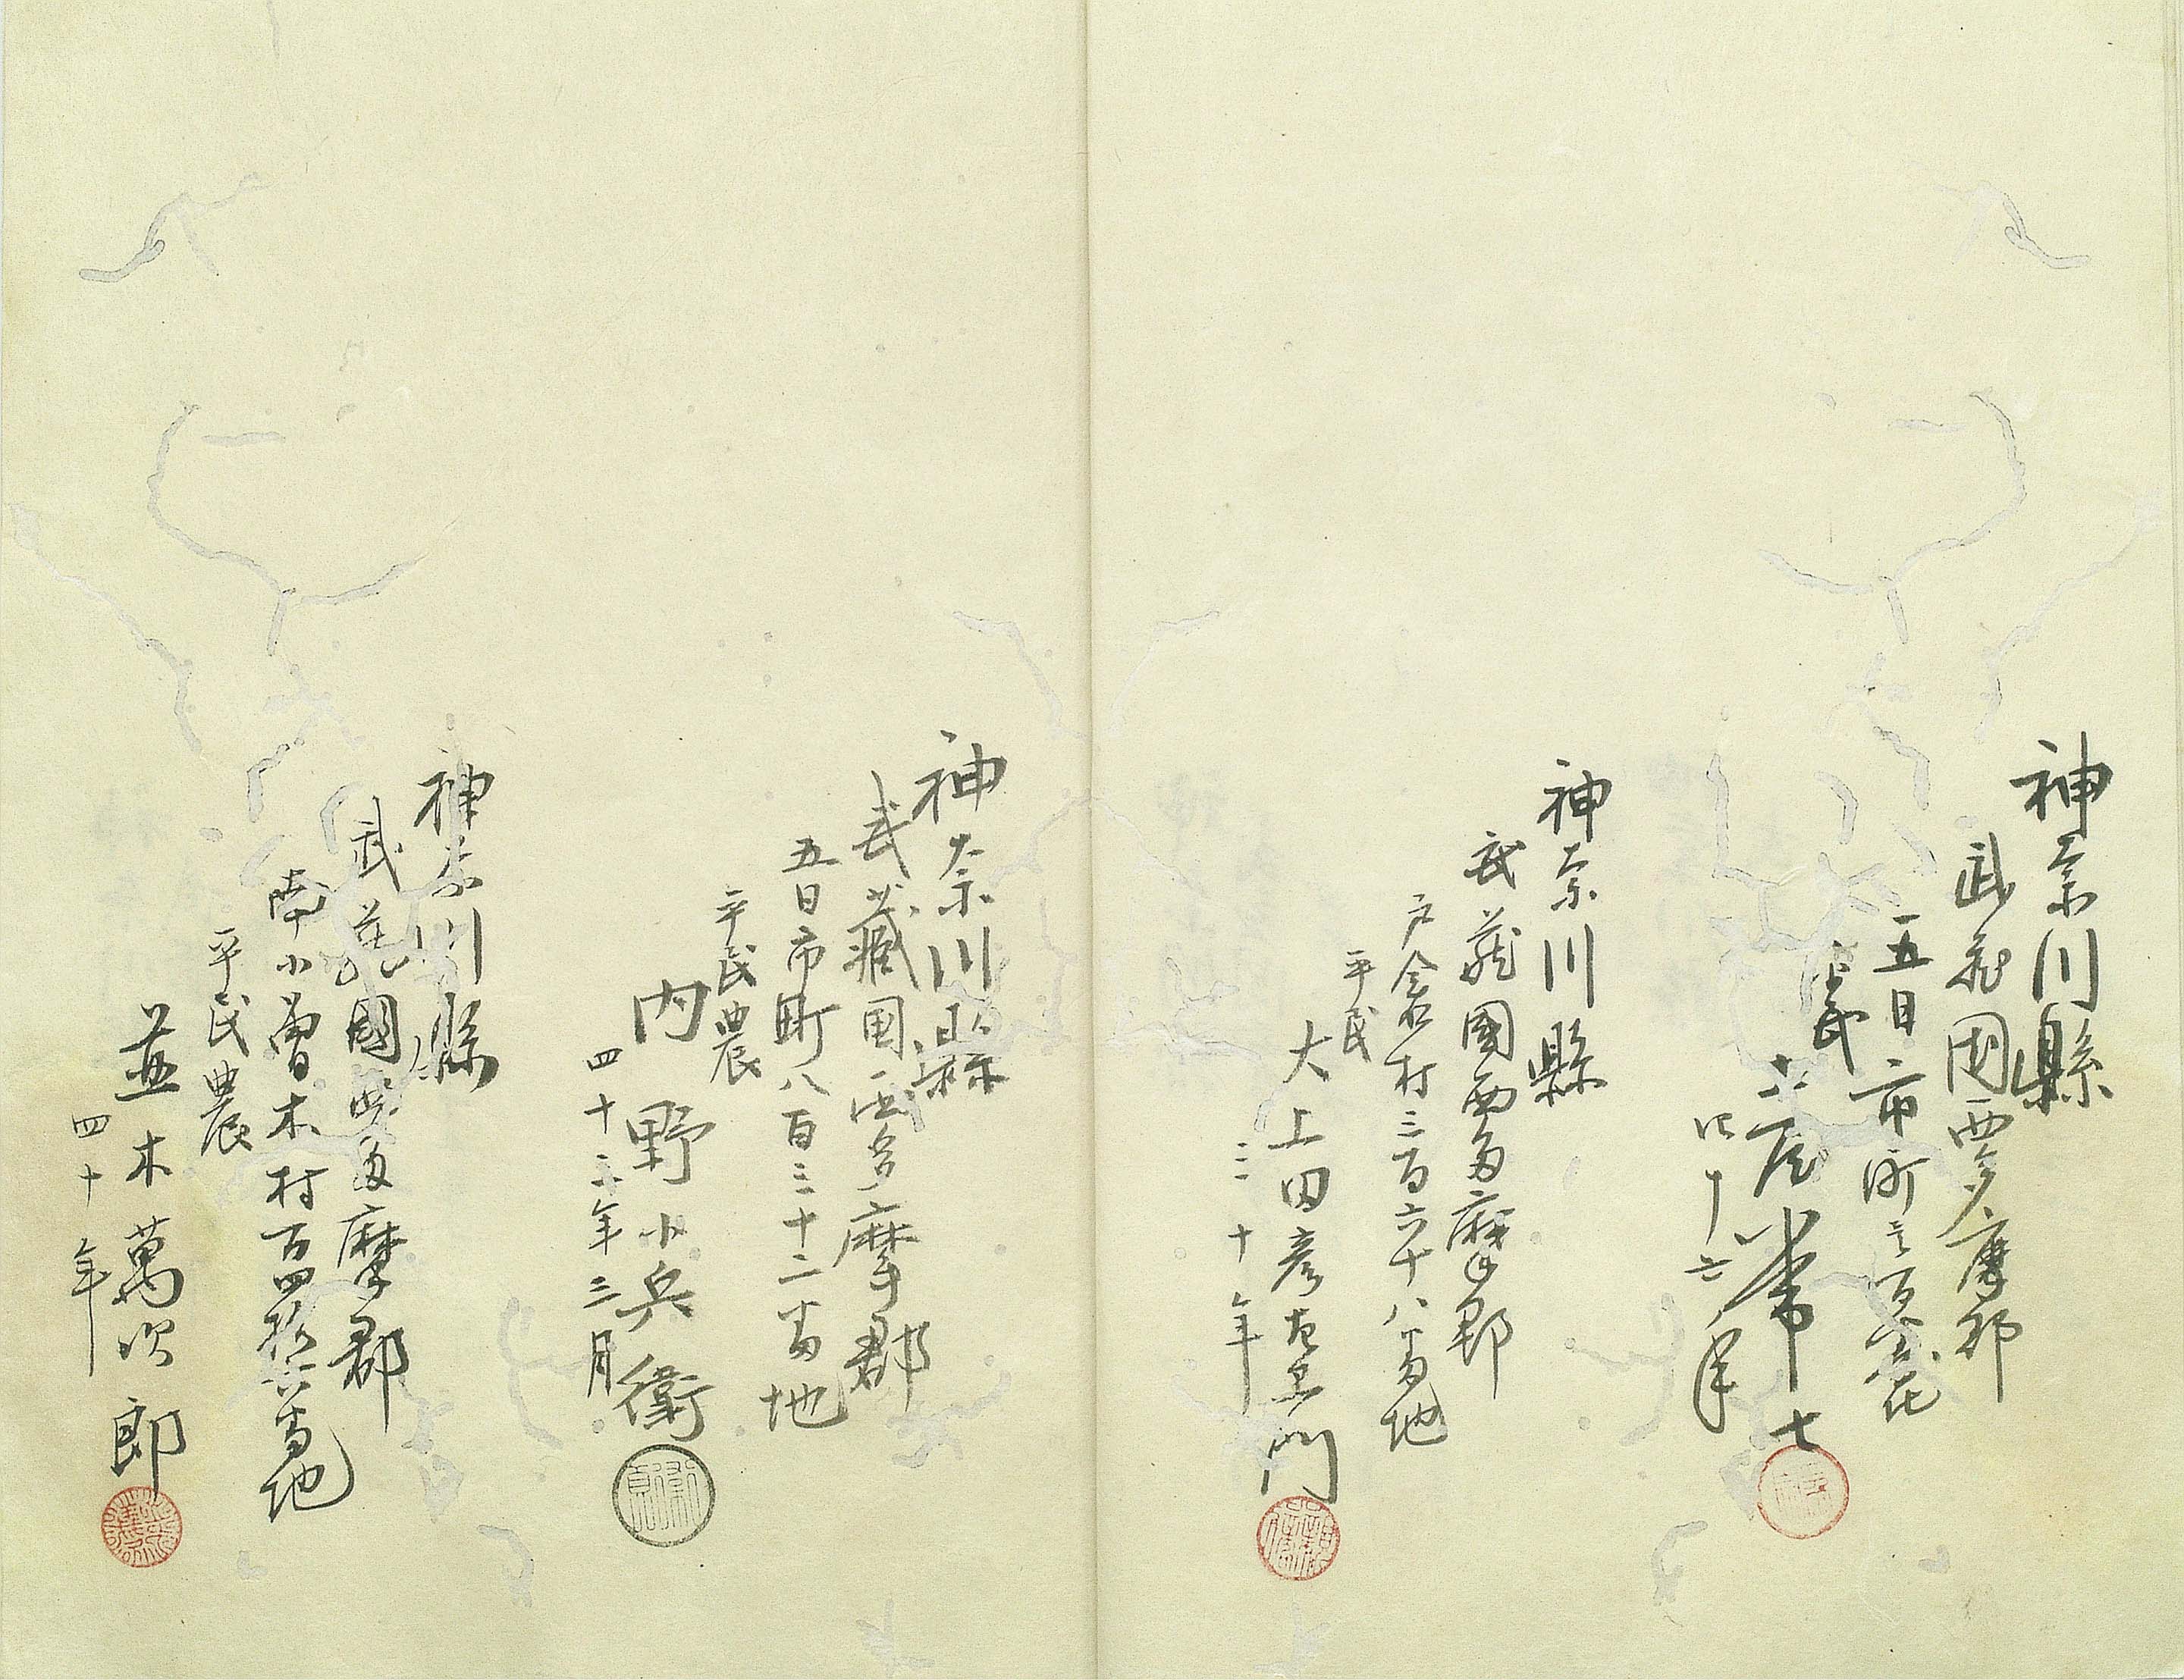 神奈川縣
武蔵国西多摩郡
五日市町三百番地
平民
土屋常七
四十六年
神奈川縣
武蔵國西多摩郡
戸倉村三百六十八番地
平民
大上田彦左エ門
三十年
神奈川縣
武蔵国西多摩郡
五日市町八百三十二番地
平民農
内野小兵衛
四十二年三月
神奈川縣
武蔵國西多摩郡
南小曽木村百四拾六番地
平民農
並木萬次郎
四十年